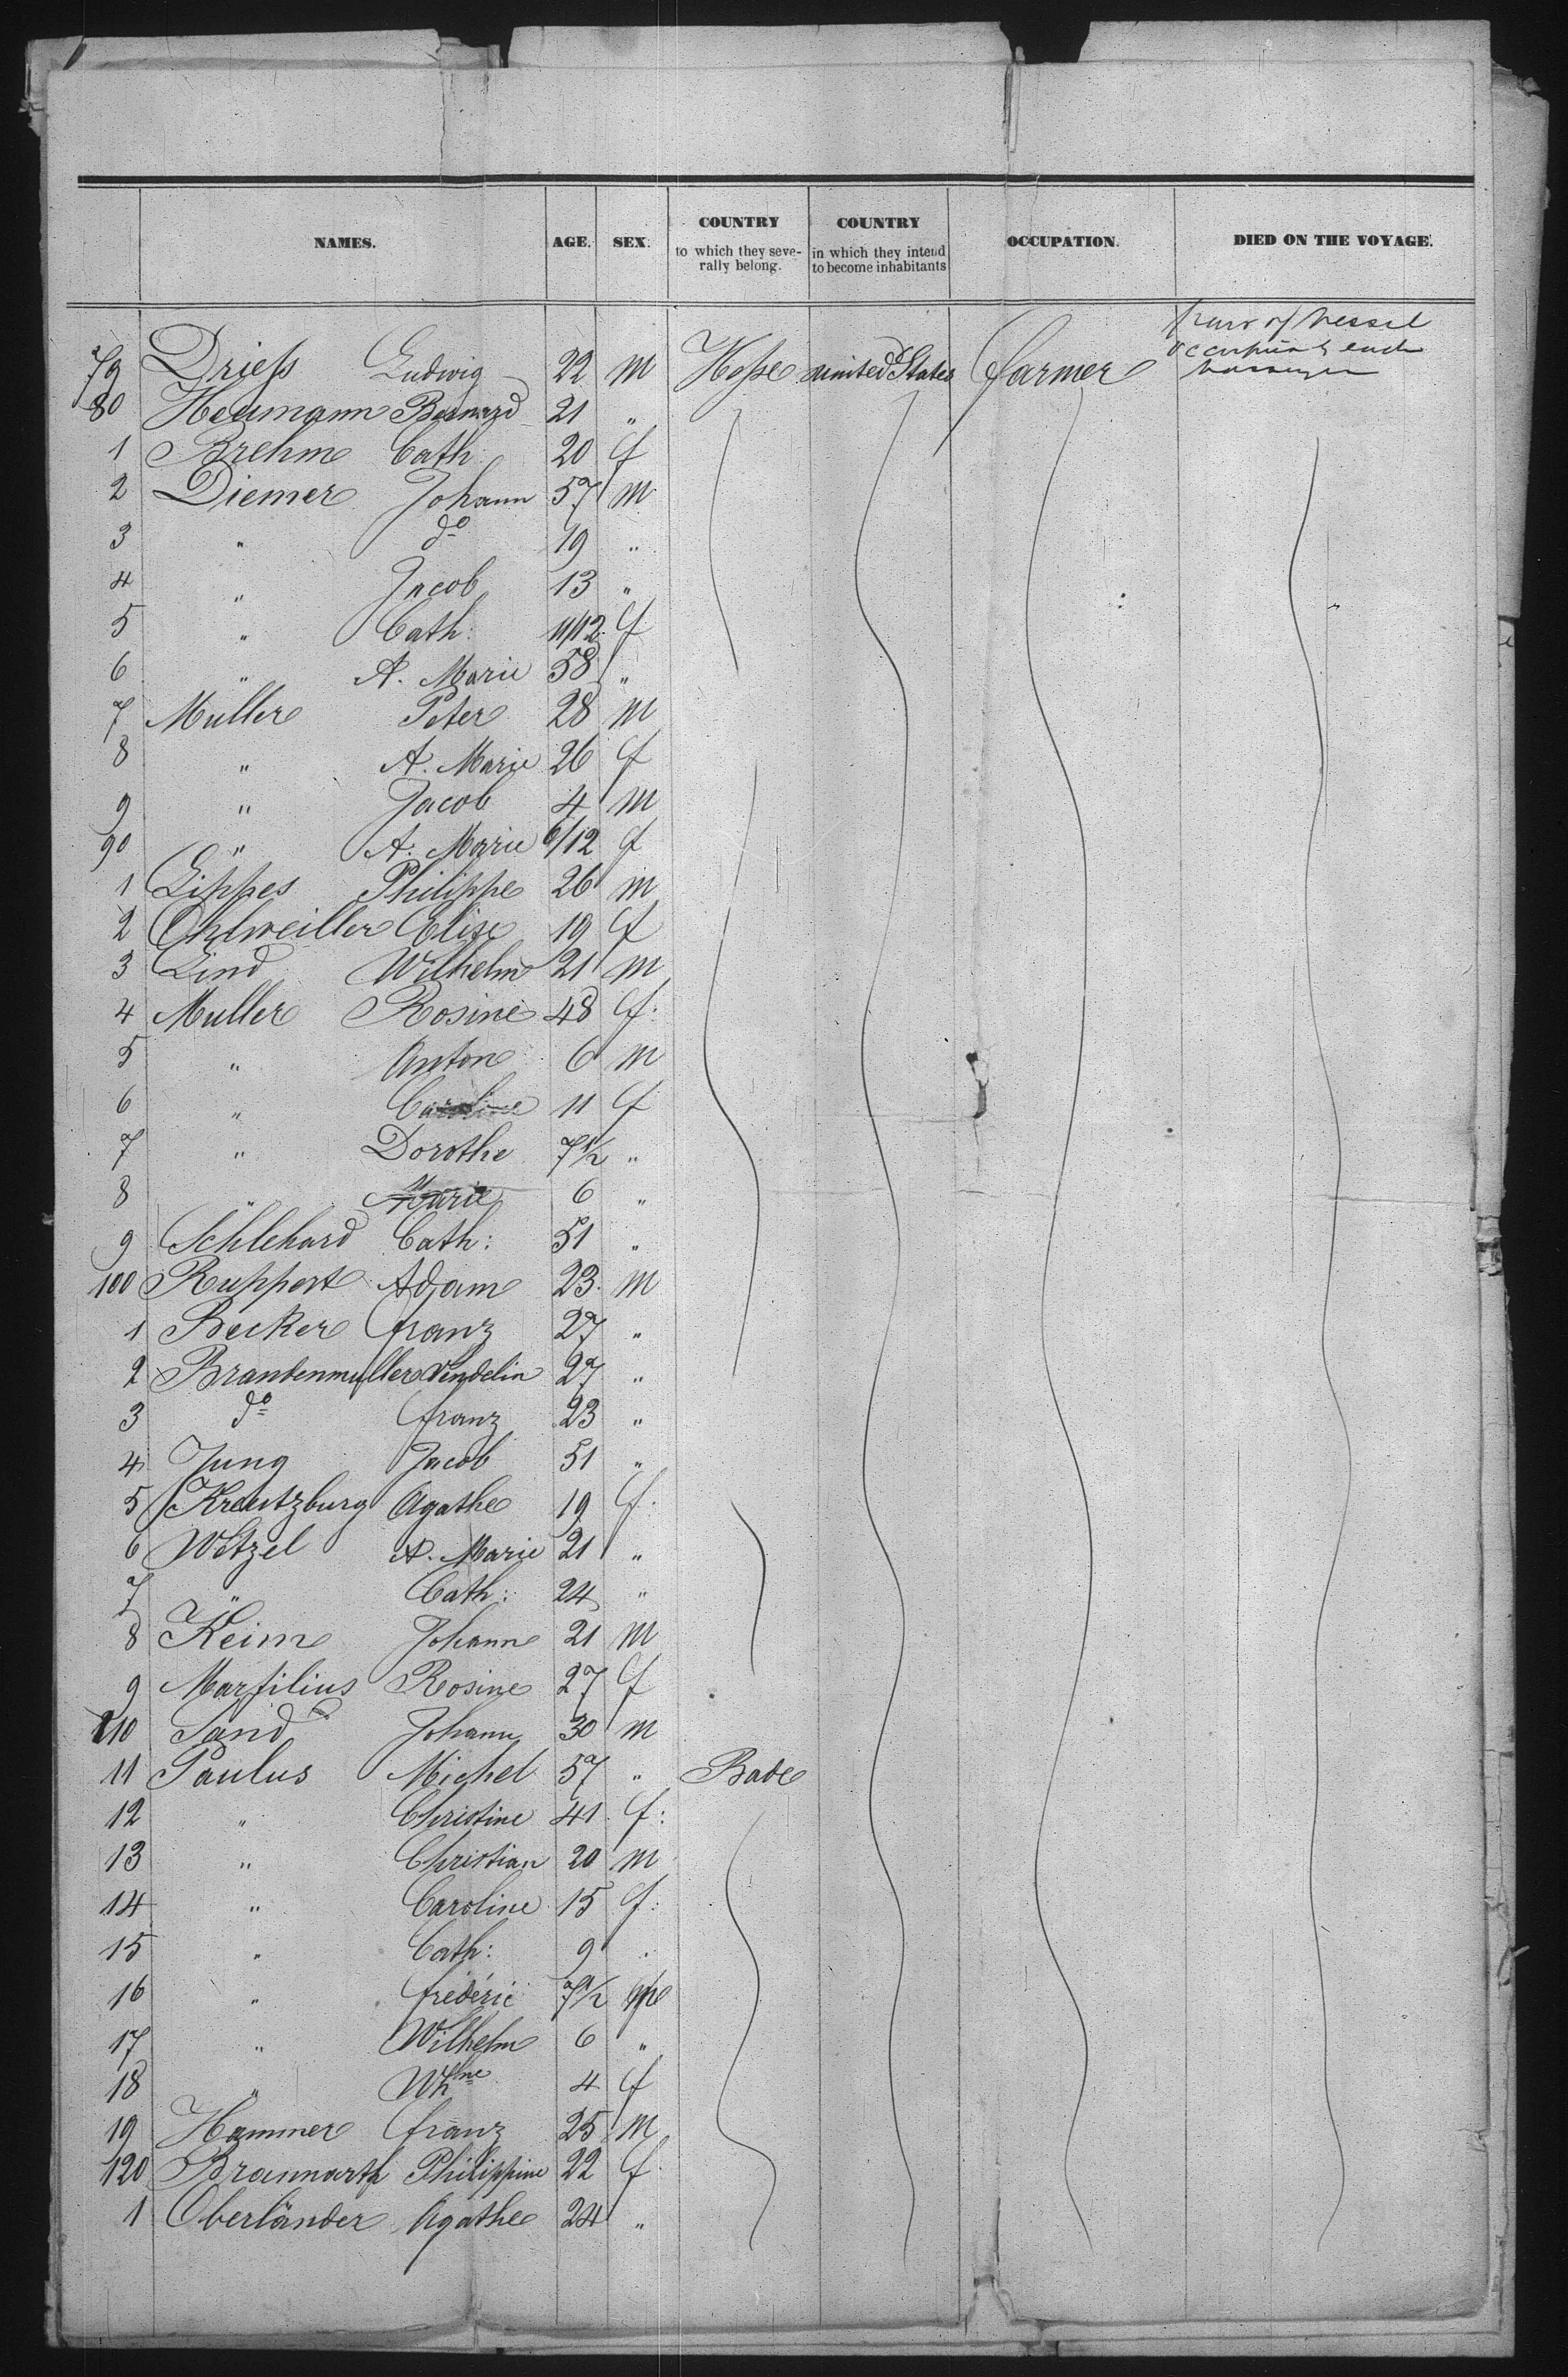 NAMES. AGE. SEX. COUNTRY to which they severally belong. COUNTRY in which they intend to become inhabitants OCCUPATION. DIED ON THE VOYAGE.
of Vessel
79 Driess Ludwig 22 m Hesse united States farmer
80 Heumann Bernard 21 "
1 Brehm Cath 20 f
2 Diemer Johann 57 m
3 " do 19 "
4 " Jacob 13 "
5 " Cath: 11/12 f
6 " A. Marie 58 "
7 Muller Peter 28 m
8 " A. Marie 26 f
9 " Jacob 4 m
90 " A. Marie 6/12 f
1 Lippes Philippe 26 m
2 Ohlweiller Elise 19 f
3 Lind Wilhelm 21 m
4 Muller Rosine 48 f:
5 " Anton 6 m
6 " Caroline 11 f
7 " Dorothe 7 1/2 "
8 " Marie 6 "
9 Schlehard Cath: 51 "
100 Ruppert Adam 23 m
1 Becker franz 27 "
2 Brandenmuller Vendelin 27 "
3 do franz 23 "
4 Jung Jacob 51 "
5 Kreutzburg Agathe 19 f.
6 Wetzel A. Marie 21 "
7 " Cath: 24 "
8 Keim Johann 21 m
9 Marfilius Rosine 27 f
110 Sand Johann 30 m
11 Paulus Michel 57 " Bade
12 " Christine 41 f:
13 " Christian 20 m
14 " Caroline 15 f:
15 " Cath: 9 "
16 " frédéric 7 1/2 m
17 " Wilhelm 6 "
18 " Whne 4 f
19 Hammer franz 25 m
120 Brannarth Philippine 22 f
1 Oberländer Agathe 24 "